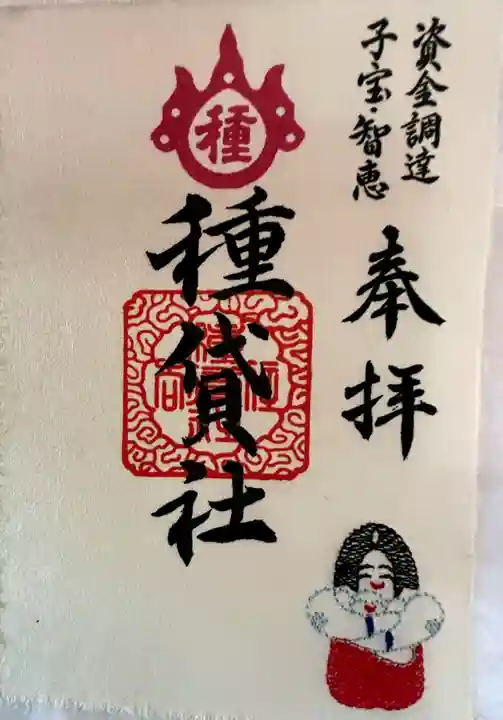 資金調達
子宝・智恵
奉拝
種
種貸社